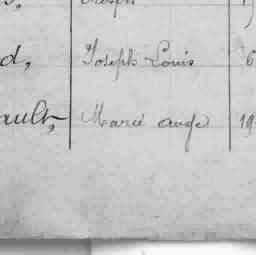 d, Joseph Louis 6
ault, Marie ange 19